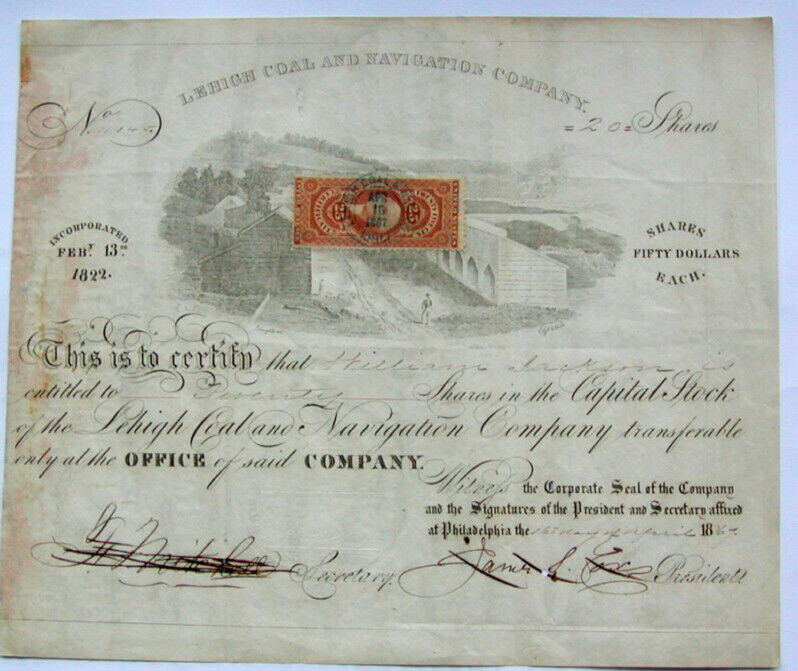 LEHIGH COAL AND NAVIGATION COMPANY.
No
=20= Shares
INCORPORATED
FEBY. 13TH.
1822.
APR
10
1867
25
25
SHARES
FIFTY DOLLARS
EACH.
This is to certify that William Jackson is
entitled to Twenty Shares in the Capital Stock
of the Lehigh Coal and Navigation Company transferable
only at the OFFICE of said COMPANY.
Witness the Corporate Seal of the Company
and the Signatures of the President and Secretary affixed
at Philadelphia the day of April 186
Secretary.
James S. Cox President.